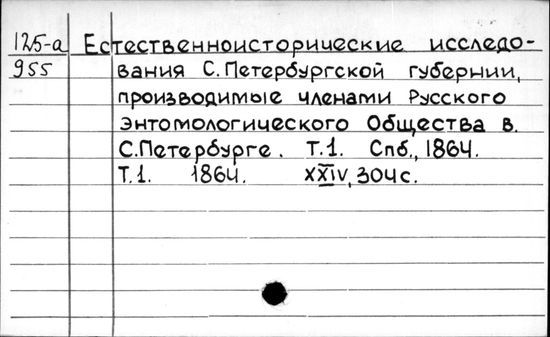 125-а Естественноисторические исследо-
955 вания С.Петербургской губернии,
производимые членами Русского
Энтомологического Общества в.
С.Петербурге. Т.1. Спб., 1864.
Т.1. 1864. XXIV, 304с.